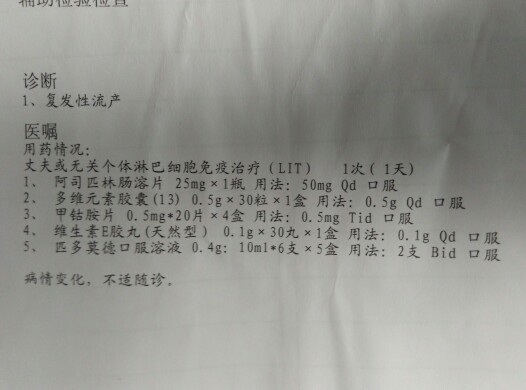 辅助检验检查
诊断
1、复发性流产
医嘱
用药情况:
丈夫或无关个体淋巴细胞免疫治疗(LIT) 1次(1天)
1、 阿司匹林肠溶片 25mg×1瓶 用法: 50mg Qd 口服
2、 多维元素胶囊(13) 0.5g×30粒×1盒 用法: 0.5g Qd 口服
3、 甲钴胺片 0.5mg*20片×4盒 用法: 0.5mg Tid 口服
4、 维生素E胶丸(天然型) 0.1g×30丸×1盒 用法: 0.1g Qd 口服
5、 匹多莫德口服溶液 0.4g: 10ml*6支×5盒 用法: 2支 Bid 口服
病情变化,不适随诊。